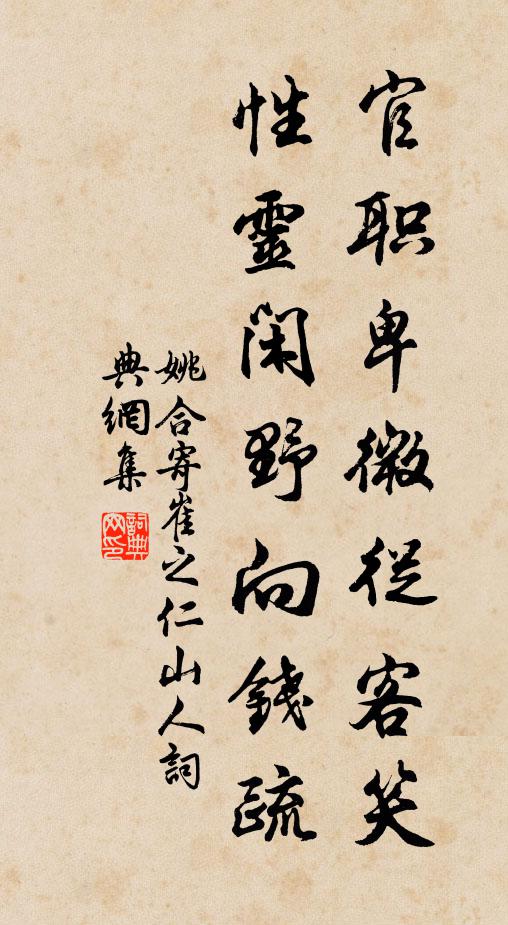 官职卑微從客笑
性靈閑野向錢疏
姚合寄崔之仁山人詞
典網集
詞典網印